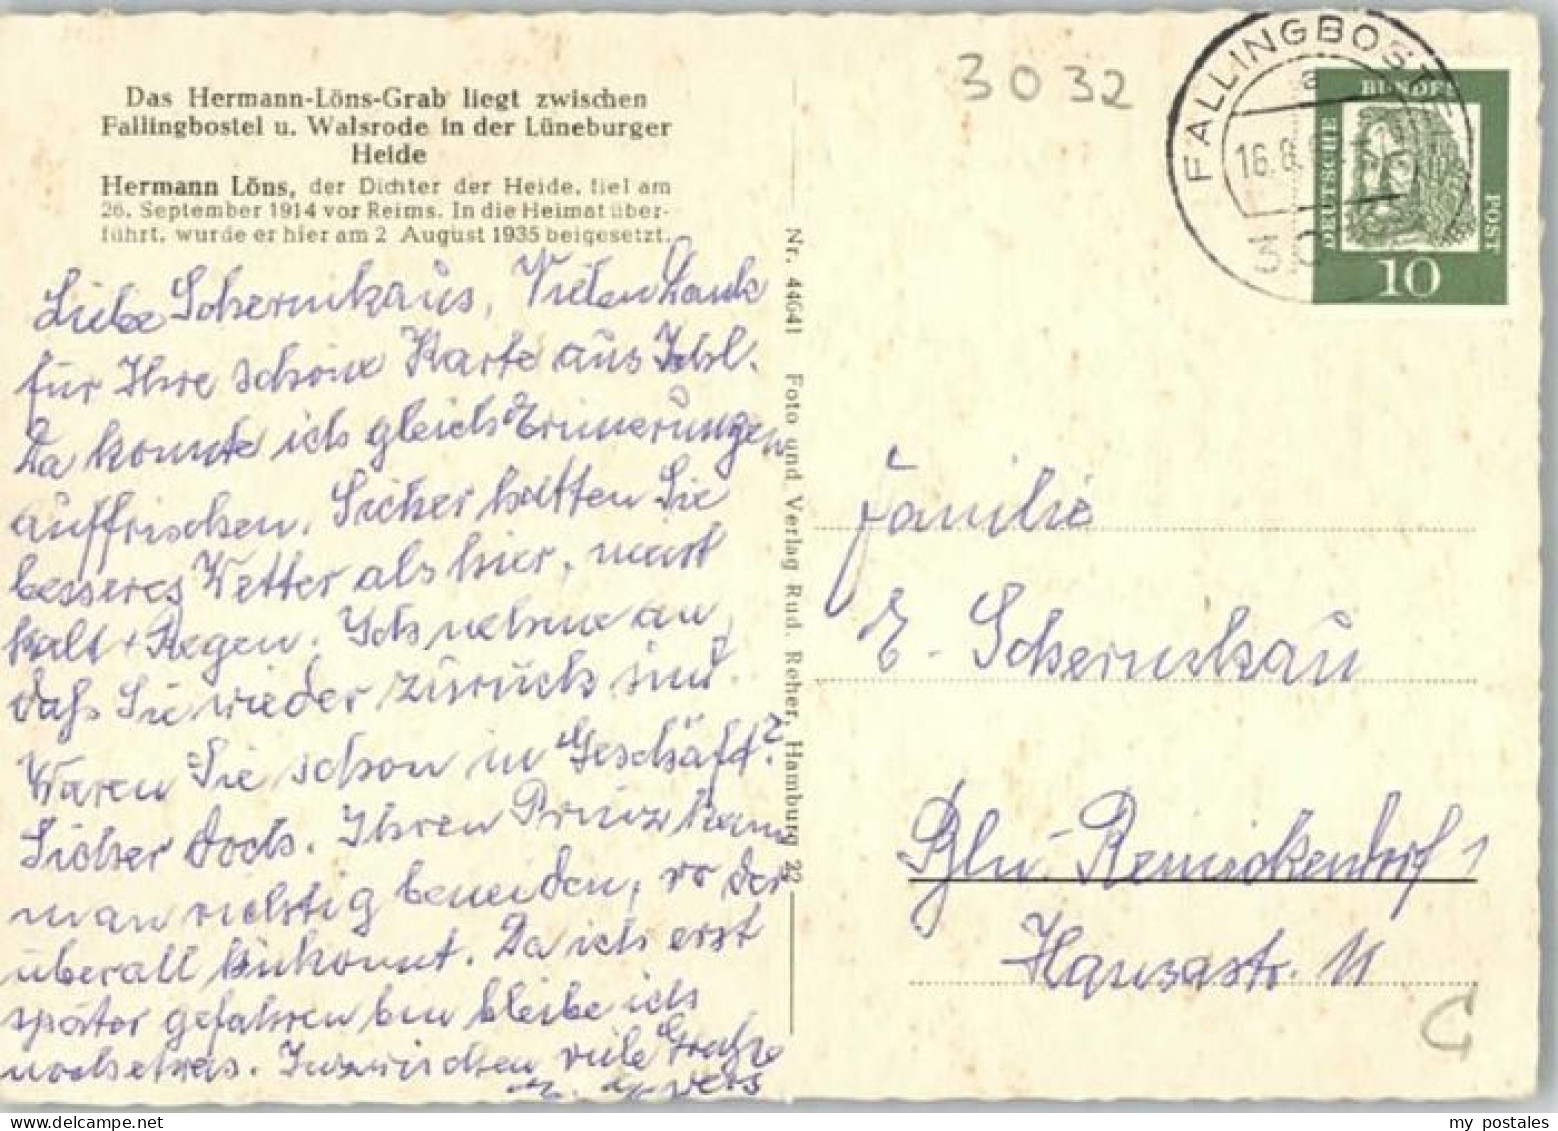 Das Hermann-Löns-Grab liegt zwischen
Fallingbostel u. Walsrode in der Lüneburger
Heide
Hermann Löns, der Dichter der Heide, fiel am
26. September 1914 vor Reims. In die Heimat über-
führt, wurde er hier am 2 August 1935 beigesetzt.
Liebe Schernikaus, Vielen Dank
für Ihre schöne Karte aus
Da konnte ich gleich Erinnerungen
auffrischen. Sicher hatten Sie
besseres Wetter als hier, meist
kalt + Regen. Ich nehme an,
daß Sie wieder zurück sind.
Waren Sie schon im Geschäft?
Sicher doch. Ihren Prinz kann
man richtig beneiden, wo der
überall hinkommt. Da ich erst
später gefahren bin bleibe ich
noch etwas. Inzwischen viele Grüße
Nr. 44641 Foto und Verlag Rud. Reher, Hamburg 22
3032
FALLINGBOSTEL
a
16.8.
30
DEUTSCHE
BUNDES
POST
10
Familie
E. Schernikau
Bln-Reinickendorf 1
Hausastr. 11
my postales